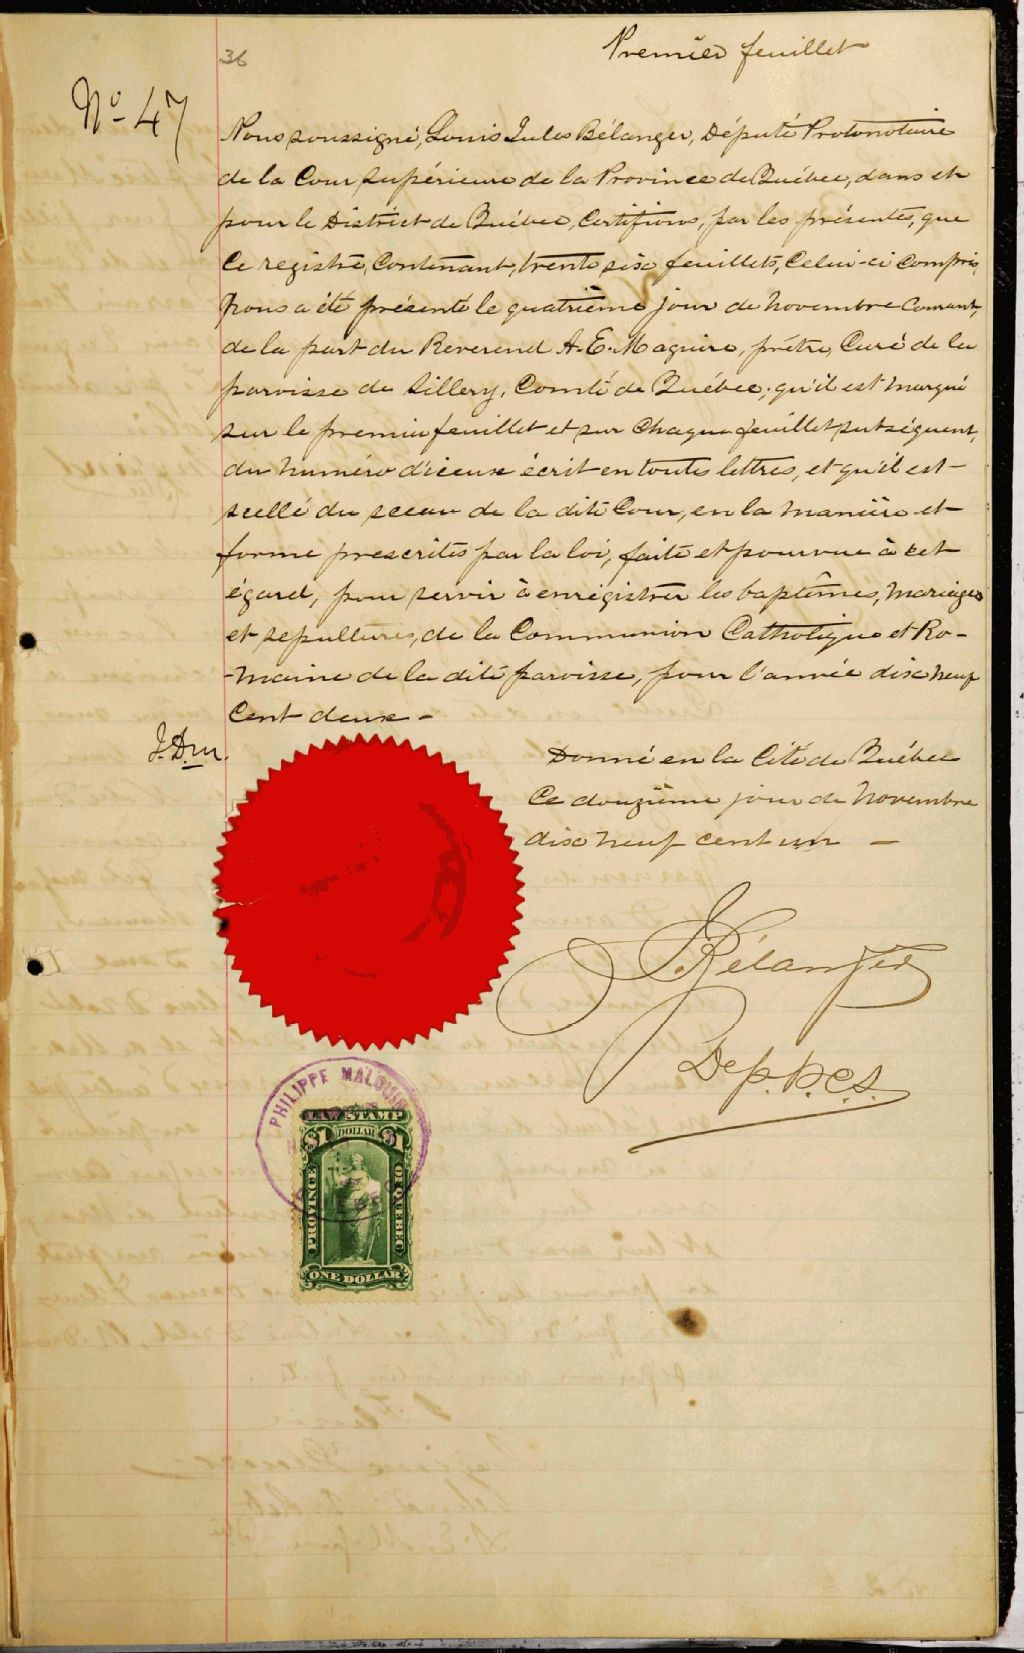 36
Premier feuillet
No 47
Nous soussigné, Louis Jules Bélanger, Député Protonotaire
de la Cour Supérieure de la Province de Québec, dans et
pour le District de Québec, Certifions, par les présentes, que
Ce registre, Contenant, trente six feuillets, Celui-ci Compris,
nous a été présenté le quatrième jour de Novembre Courant,
de la part du Reverend A. E. Maguire, prêtre, Curé de la
paroisse de Sillery, Comté de Québec; qu'il est marqué
sur le premier feuillet et sur Chaque feuillet subséquent,
du Numéro d'iceux écrit en toutes lettres, et qu'il est
scellé du sceau de la dite Cour, en la Manière et
forme prescrites par la loi, faite et pourvue à cet
égard, pour servir à enrégistrer les baptêmes, Mariages
et sepultures, de la Communion Catholique et Ro-
-maine de la dite paroisse, pour l'année dix neuf
Cent deux -
Donné en la Cité de Québec
Ce douzième jour de Novembre
dix neuf cent un -
Bélanger
Dep. P.C.S.
PHILIPPE MALOUIN
LAW STAMP
$1 DOLLAR $1
PROVINCE OF QUEBEC
ONE DOLLAR